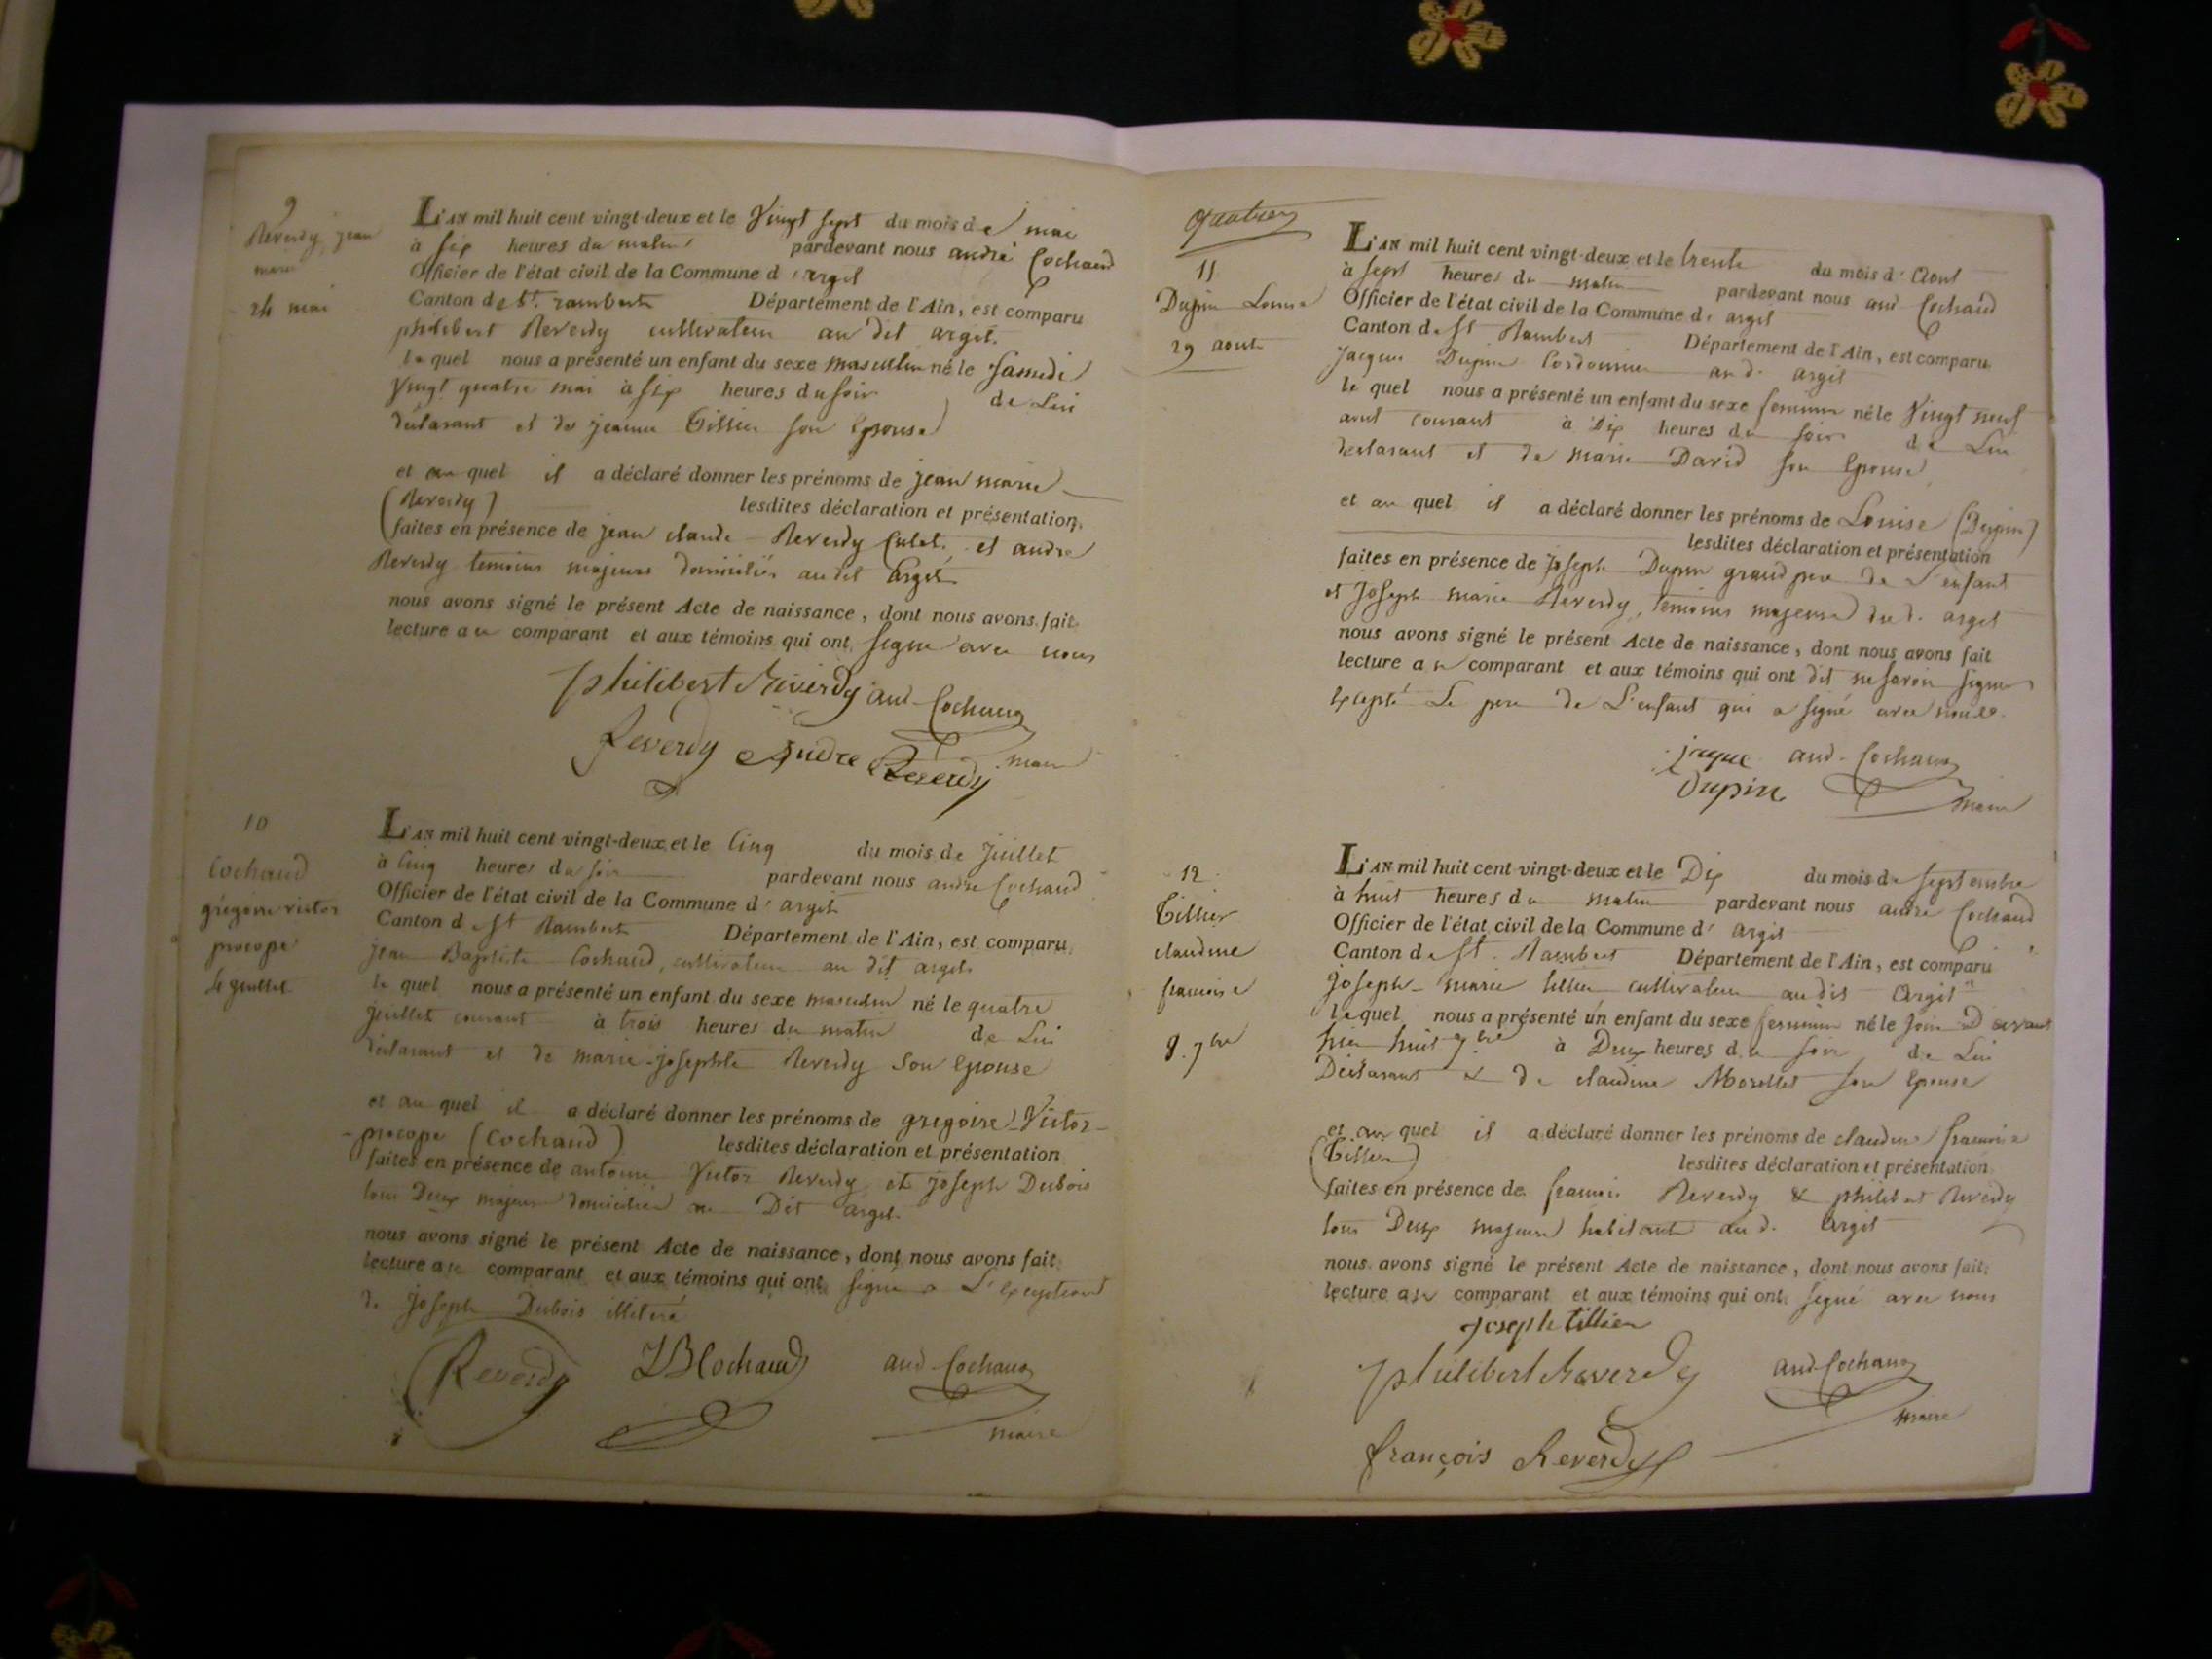 9
Reverdy jean
marie
24 mai
L'AN mil huit cent vingt-deux et le Vingt sept du mois de mai
à six heures du matin pardevant nous andré Cochand
Officier de l'état civil de la Commune d'argit
Canton de St. rambert Département de l'Ain, est comparu
philibert Reverdy cultivateur au dit argit.
lequel nous a présenté un enfant du sexe masculin né le samedi
Vingt quatre mai à six heures du soir de Lui
déclarant et de jeanne Tillier son Epouse
et au quel il a déclaré donner les prénoms de jean marie
(Reverdy) lesdites déclaration et présentation,
faites en présence de jean claude Reverdy et andre
Reverdy temoins majeurs domiciliés au dit argit
nous avons signé le présent Acte de naissance, dont nous avons fait
lecture au comparant et aux témoins qui ont signé avec nous
philibert Reverdy and Cochand
Reverdy Andre Reverdy maire
10
Cochaud
grégoire victor
procope
4 juillet
L'AN mil huit cent vingt-deux et le Cinq du mois de Juillet
à Cinq heures du soir pardevant nous andre Cochand
Officier de l'état civil de la Commune d'argit
Canton de St Rambert Département de l'Ain, est comparu
jean Baptiste Cochaud, cultivateur au dit argit
le quel nous a présenté un enfant du sexe masculin né le quatre
juillet courant à trois heures du matin de Lui
déclarant et de marie-josephte Reverdy son Epouse
et au quel il a déclaré donner les prénoms de gregoire Victor
procope (Cochaud) lesdites déclaration et présentation
faites en présence de antoine Victor Reverdy et joseph Dubois
tous Deux majeurs domiciliés au Dit argit
nous avons signé le présent Acte de naissance, dont nous avons fait
lecture au comparant et aux témoins qui ont signé a L'exception
de joseph Dubois illiteré
Reverdy JB Cochaud and Cochand
maire
quatre
11
Dupin Louise
29 aout
L'AN mil huit cent vingt-deux et le trente du mois d'Aout
à sept heures du matin pardevant nous and Cochand
Officier de l'état civil de la Commune de argit
Canton de St Rambert Département de l'Ain, est comparu
jacques Dupin Cordonnier au d. argit
le quel nous a présenté un enfant du sexe feminin né le Vingt neuf
aout courant à Dix heures du soir de Lui
declarant et de marie David son Epouse
et au quel il a déclaré donner les prénoms de Louise (Dupin)
lesdites déclaration et présentation
faites en présence de joseph Dupin grand pere de L'enfant
et joseph marie Reverdy, temoins majeurs dud. argit
nous avons signé le présent Acte de naissance, dont nous avons fait
lecture au comparant et aux témoins qui ont dit ne savoir signer
Excepté Le pere de L'enfant qui a signé avec nous.
jaque and Cochand
Dupin maire
12
Tillier
claudine
francoise
8. 7bre
L'AN mil huit cent vingt-deux et le Dix du mois de septembre
à huit heures du matin pardevant nous andre Cochand
Officier de l'état civil de la Commune d'argit
Canton de St. Rambert Département de l'Ain, est comparu
joseph-marie tillier cultivateur au dit argit
lequel nous a présenté un enfant du sexe feminin né le jour D'avant
hier huit 7bre à Deux heures du soir de Lui
Déclarant & de claudine Morellet son Epouse
et au quel il a déclaré donner les prénoms de claudine francoise
(Tillier) lesdites déclaration et présentation
faites en présence de francois Reverdy & philibert Reverdy
tous Deux majeurs habitants au d. argit
nous avons signé le présent Acte de naissance, dont nous avons fait
lecture au comparant et aux témoins qui ont signé avec nous
Joseph tillier
philibert Reverdy and Cochand
maire
françois Reverdy